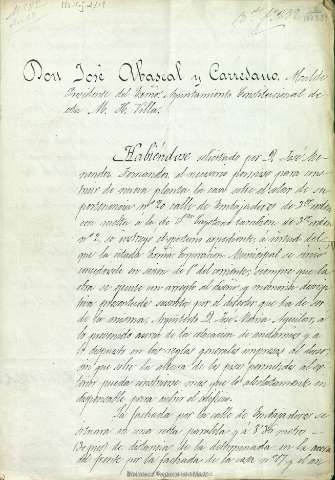 Don José Abascal y Carredano, Alcalde
Presidente del Excmo. Ayuntamiento Constitucional de
esta M. H. Villa.
Habiéndose solicitado por D. José Me-
nendez Fernandez el necesario permiso para cons-
truir de nueva planta la casa sobre el solar de su
pertenencia nº 20 calle de Embajadores de 3er orden
con vuelta á la de Sn Cayetano tambien de 3er orden
nº 2, se instruyó el oportuno expediente, á virtud del
que la citada Excma Corporacion Municipal se sirvió
concederle en sesion de 1º del corriente, siempre que la
obra se ejecute con arreglo al plano y memoria descrip-
tiva presentados suscritos por el director que ha de ser
de la misma, Arquitecto D. José Maria Aguilar, á
lo prevenido acerca de la colocacion de andamios y á
lo dispuesto en las reglas generales impresas al dorso,
sin que sobre la altura de los pisos permitida al ex-
terior pueda construirse mas que lo absolutamente in-
dispensable para cubrir el edificio.
La fachada por la calle de Embajadores se
situará en una recta paralela y á 8,36 metros
30 pies de distancia de la determinada en la acera
del frente por la fachada de la casa nº 17 y el